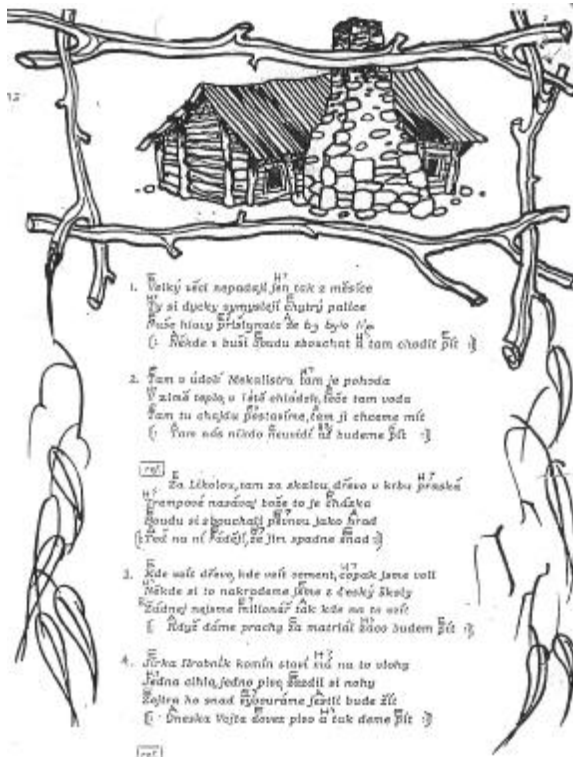 E H7
1. Velký věci nepadají jen tak z měsíce
H7 E
Ty si dycky vymyslejí chytrý palice
E E7 A
Naše hlavy přistynuta že by bylo
A E H7 E
[: Někde v buši boudu sbouchat a tam chodit pít :]
2. Tam v údolí Nekalistru tam je pohoda
V zimě teplo, v létě chládek, teče tam voda
Tam tu chajdu postavíme, tam ji chceme mít
[: Tam nás nikdo neuvidí až budeme pít :]
ref.
E H7
Za Likolou, tam za skalou dřevo v krbu praská
H7 E
Trampové nasávaj bože to je cháska
E E7 A
Boudu si sbouchali pevnou jako hrad
[: Teď na ní řádějí, že jim spadne snad :]
3. Kde vzít dřevo, kde vzít cement, copak jsme voli
Někde si to nakradem jsme z český školy
Žádnej nejsme milionář tak kde na to vzít
[: Když dáme prachy za matriál zaco budem pít :]
4. Jirka Hrobník komín staví má na to vlohy
Jedna cihla, jedno pivo, zazdil si nohy
Zejtra ho snad vybouráme jestli bude žít
[: Dneska Vojta dovez pivo a tak deme pít :]
ref.